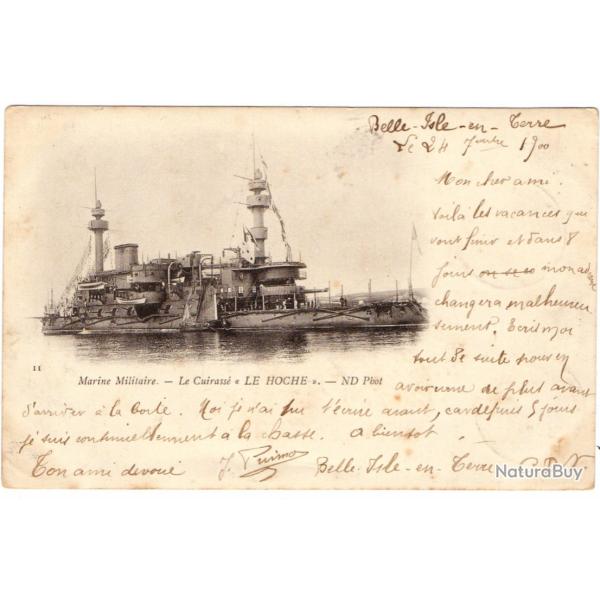 Belle-Isle-en-Terre
Le 24 7bre 1900
Mon cher ami.
Voilà les vacances que
vont finir et dans 8
jours on se mon adresse
changera malheureu
sement. Ecris moi
tout de suite pour en
avoir une de plus avant
11
Marine Militaire. — Le Cuirassé « LE HOCHE ». — ND Phot
d'arriver à la boite. Moi je n'ai pu t'écrire avant, car depuis 5 jours
je suis continuellement à la chasse. A bientôt.
Ton ami dévoué J.
Belle-Isle-en-Terre C.D.N
NaturaBuy